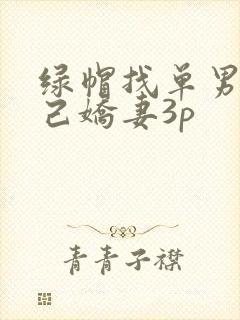 绿帽找单男
己嬌妻3p
青青子襟